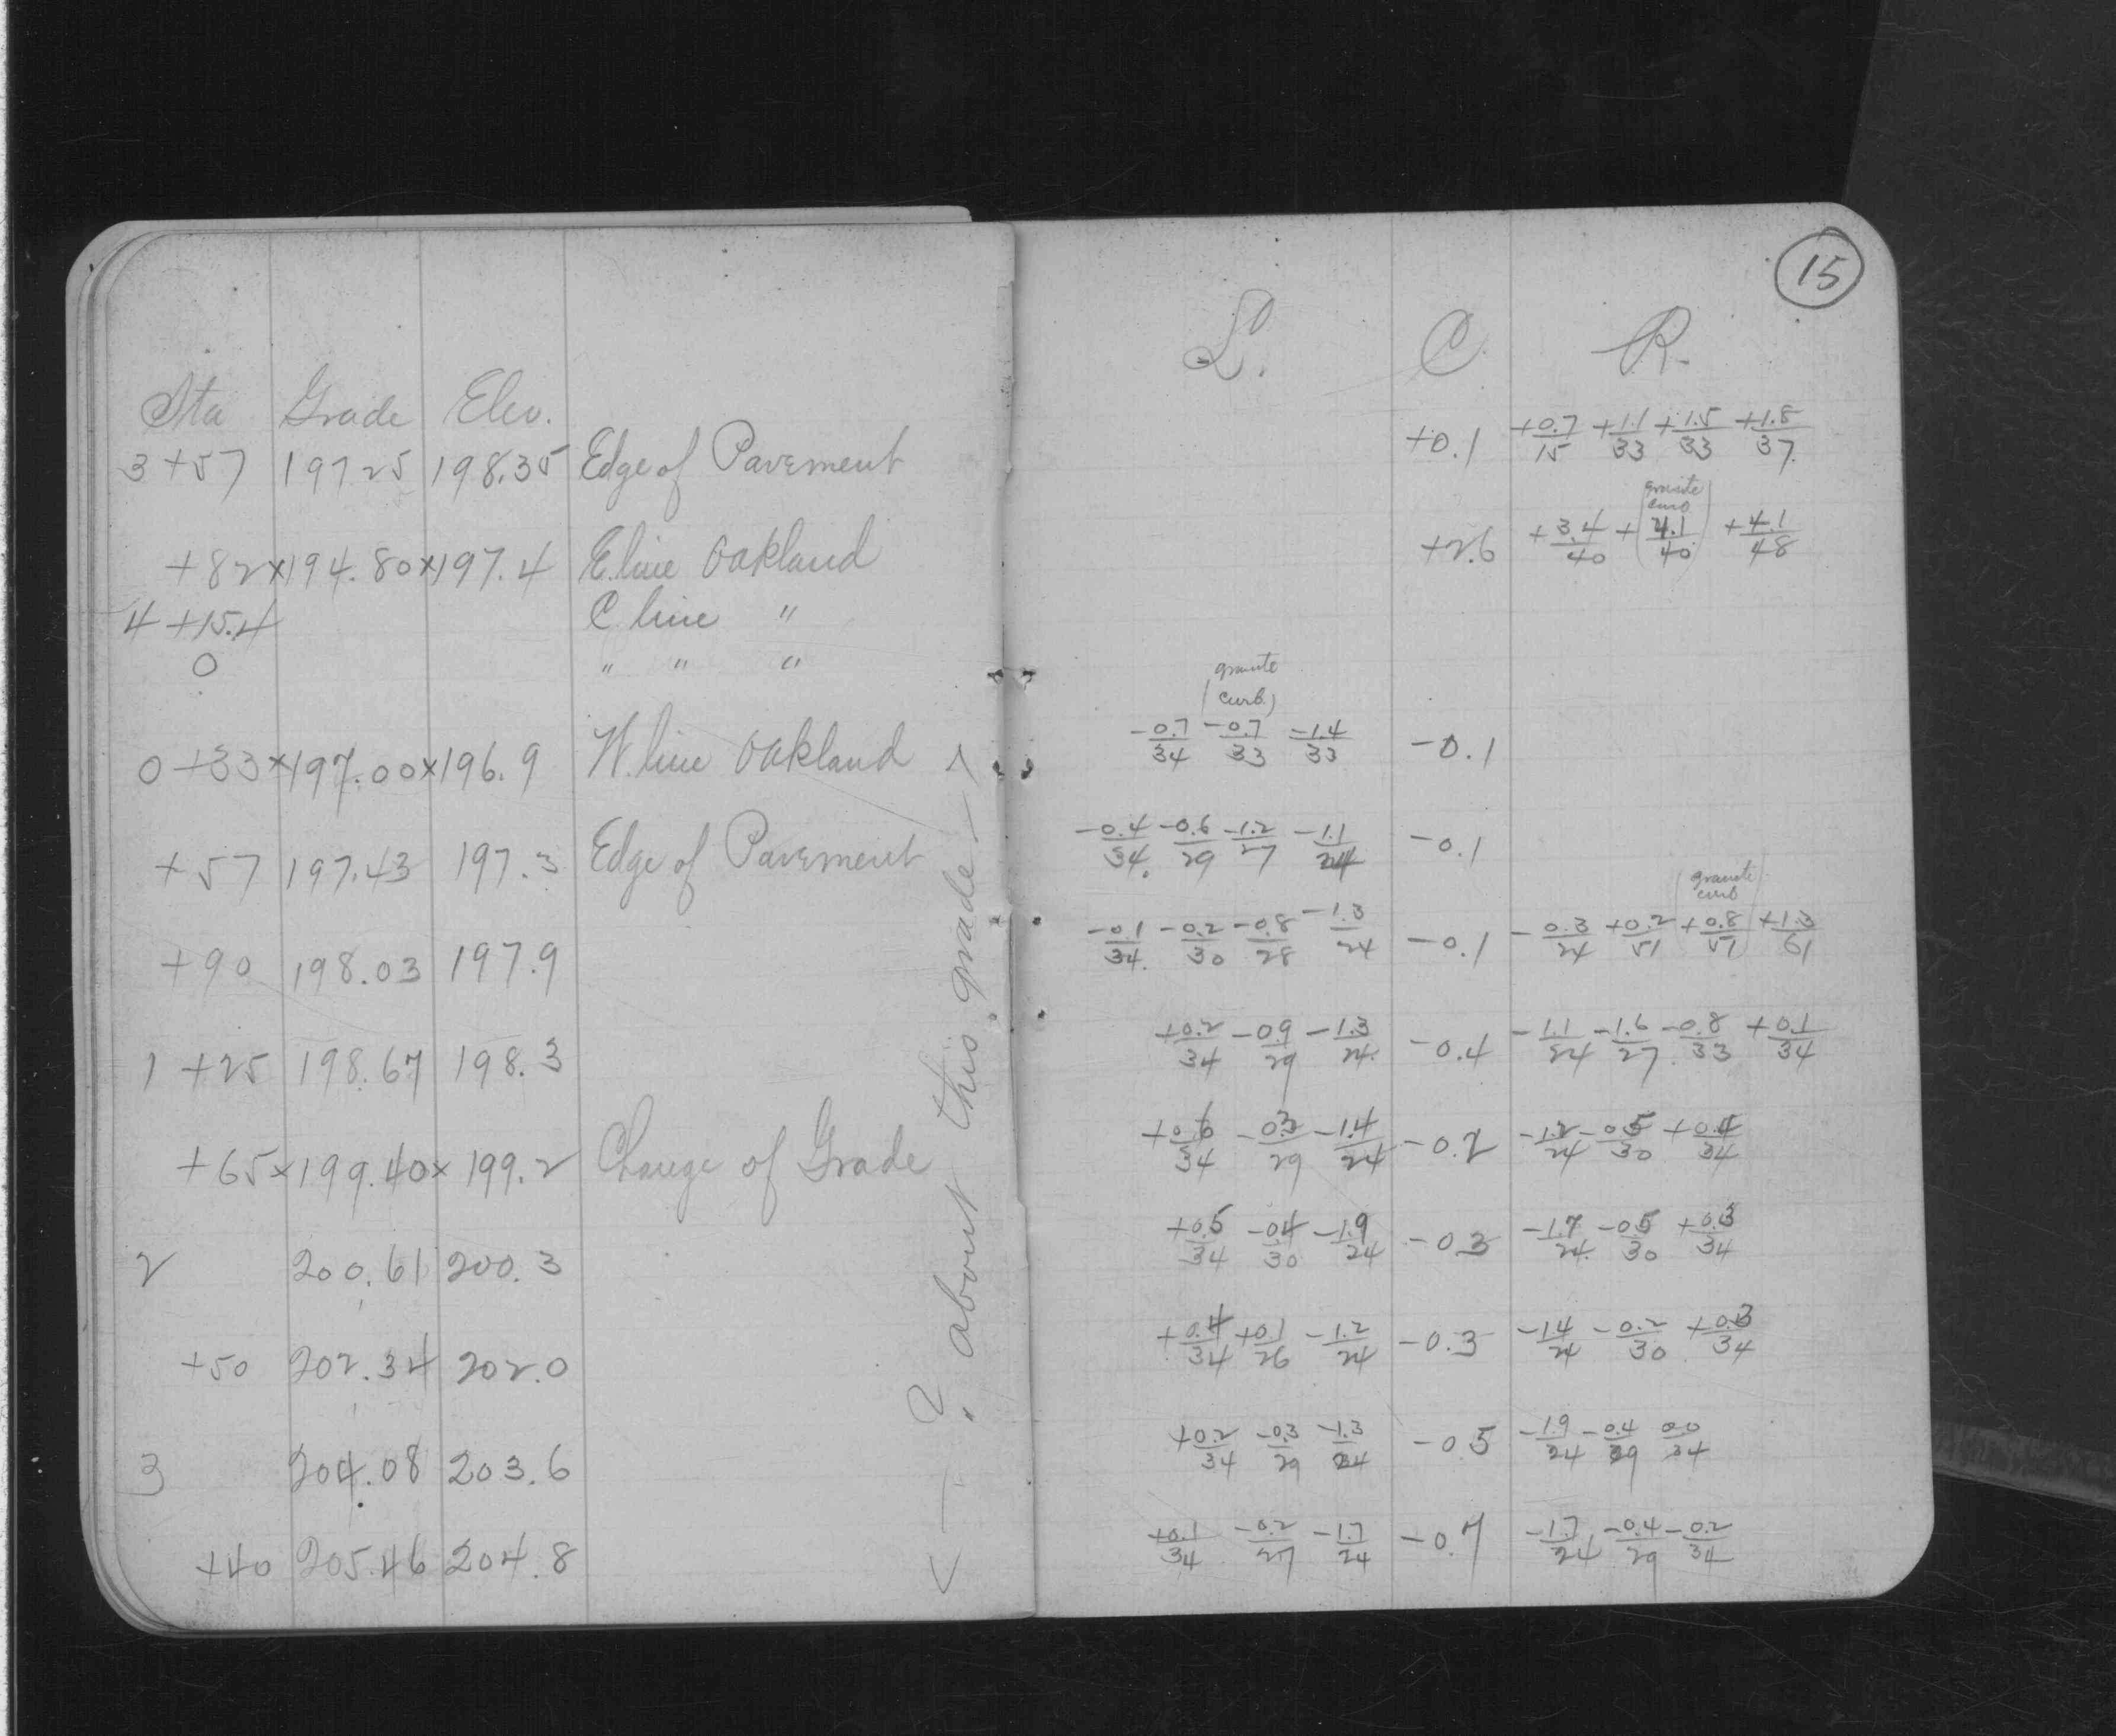 Sta Grade Elev.
3+57 197.25 198.35 Edge of Pavement
+82 x 194.80 x 197.4 E. line Oakland
4+15.4 C. line "
0 " " "
0+33 x 197.00 x 196.9 W. line Oakland
+57 197.43 197.3 Edge of Pavement
+90 198.03 197.9
1+25 198.67 198.3
+65 x 199.40 x 199.2 Change of Grade
2 200.61 200.3
+50 202.34 202.0
3 204.08 203.6
+40 205.46 204.8
<— ? about this grade —>
15
L. C. R.
+0.1 +0.7/15 +1.1/33 +1.5/33 +1.8/37
(granite curb)
+2.6 +3.4/40 +4.1/40 +4.1/48
granite
(curb)
-0.7/34 -0.7/33 -1.4/33 -0.1
-0.4/34 -0.6/29 -1.2/27 -1.1/24 -0.1
(granite curb)
-0.1/34 -0.2/30 -0.8/28 -1.3/24 -0.1 -0.3/24 +0.2/51 +0.8/51 +1.3/61
+0.2/34 -0.9/29 -1.3/24 -0.4 -1.1/24 -1.6/27 -0.8/33 +0.1/34
+0.6/34 -0.3/29 -1.4/24 -0.2 -1.2/24 -0.5/30 +0.4/34
+0.5/34 -0.4/30 -1.9/24 -0.3 -1.7/24 -0.5/30 +0.3/34
+0.4/34 +0.1/26 -1.2/24 -0.3 -1.4/24 -0.2/30 +0.3/34
+0.2/34 -0.3/29 -1.3/24 -0.5 -1.9/24 -0.4/29 0.0/34
+0.1/34 -0.2/27 -1.7/24 -0.7 -1.7/24 -0.4/29 -0.2/34